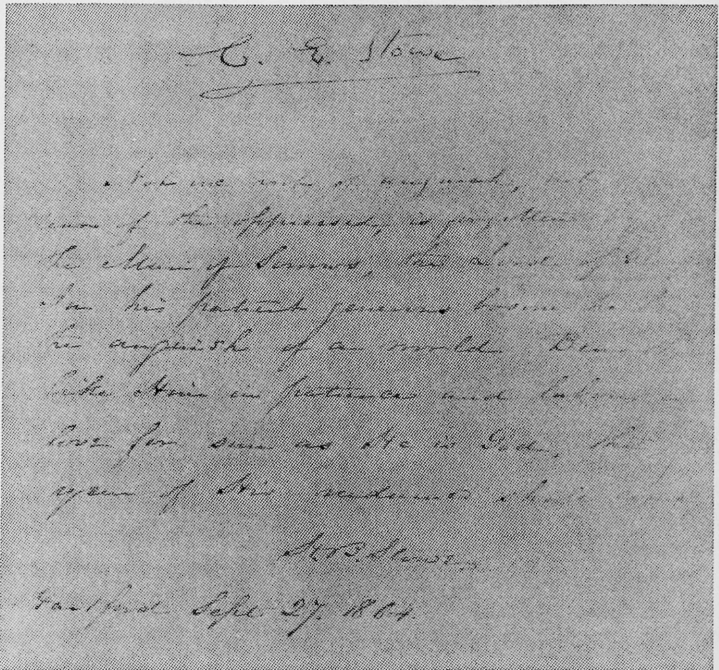 C. E. Stowe
Not one throb of anguish, not
of the oppressed, is forgotten
the Man of Sorrows, the Lord of
In his patient generous bosom he
the anguish of a world. Bear
like Him in patience and labor in
love for sure as He is God, the
year of His redeemed shall come
H B. Stowe
Hartford Sept 27. 1864.